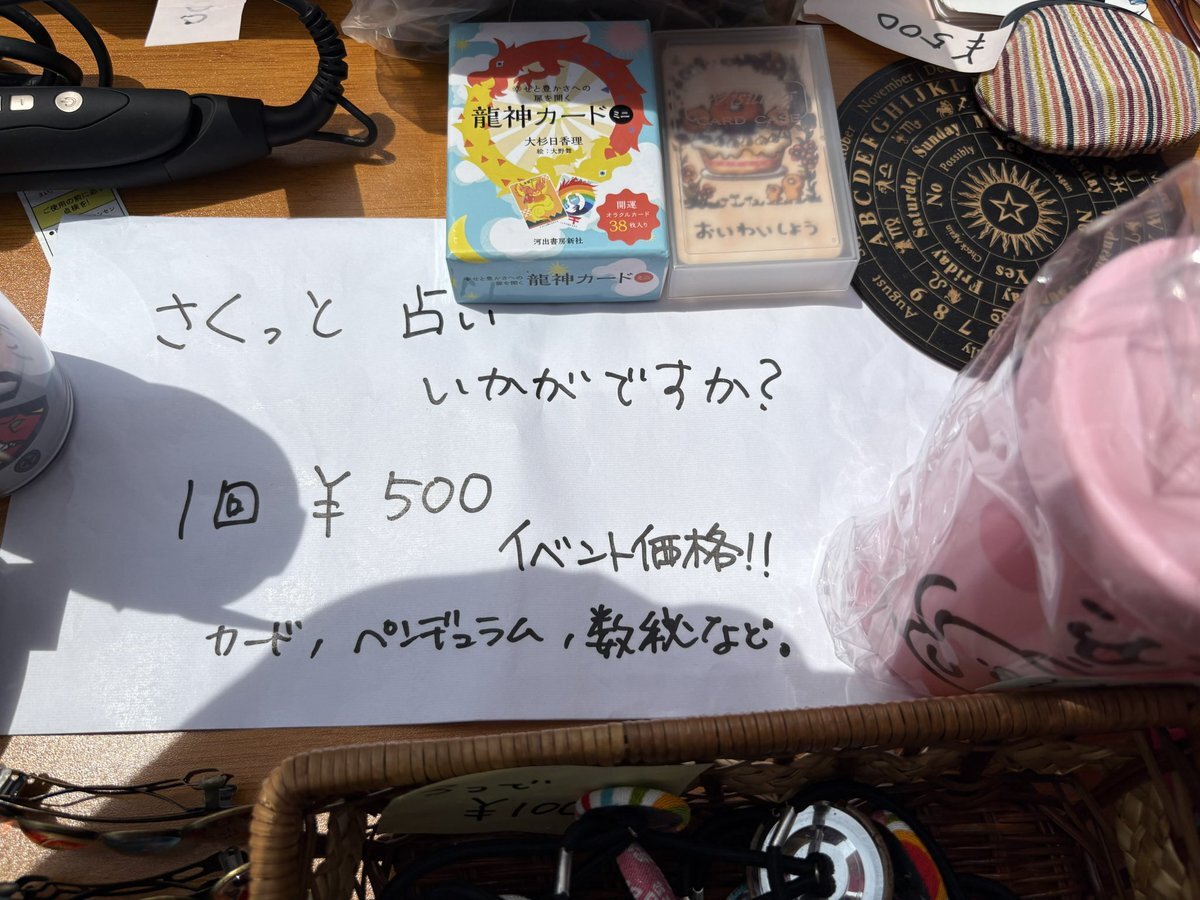 幸せと豊かさへの
扉を開く
龍神カード ミニ
大杉日香理
絵:大野舞
開運
オラクルカード
38枚入り
河出書房新社
幸せと豊かさへの
扉を開く
龍神カード
CARD CASE
おいわいしょう
¥500
ご使用の前に
点検を!
November
ABCDEFGHIJKL
Sunday
Saturday
Friday
Possibly
No
No
Check Again
Yes
Yes
August
9 8 7
さくっと 占い
いかがですか?
1回 ¥500
イベント価格!!
カード, ペンデュラム, 数秘など。